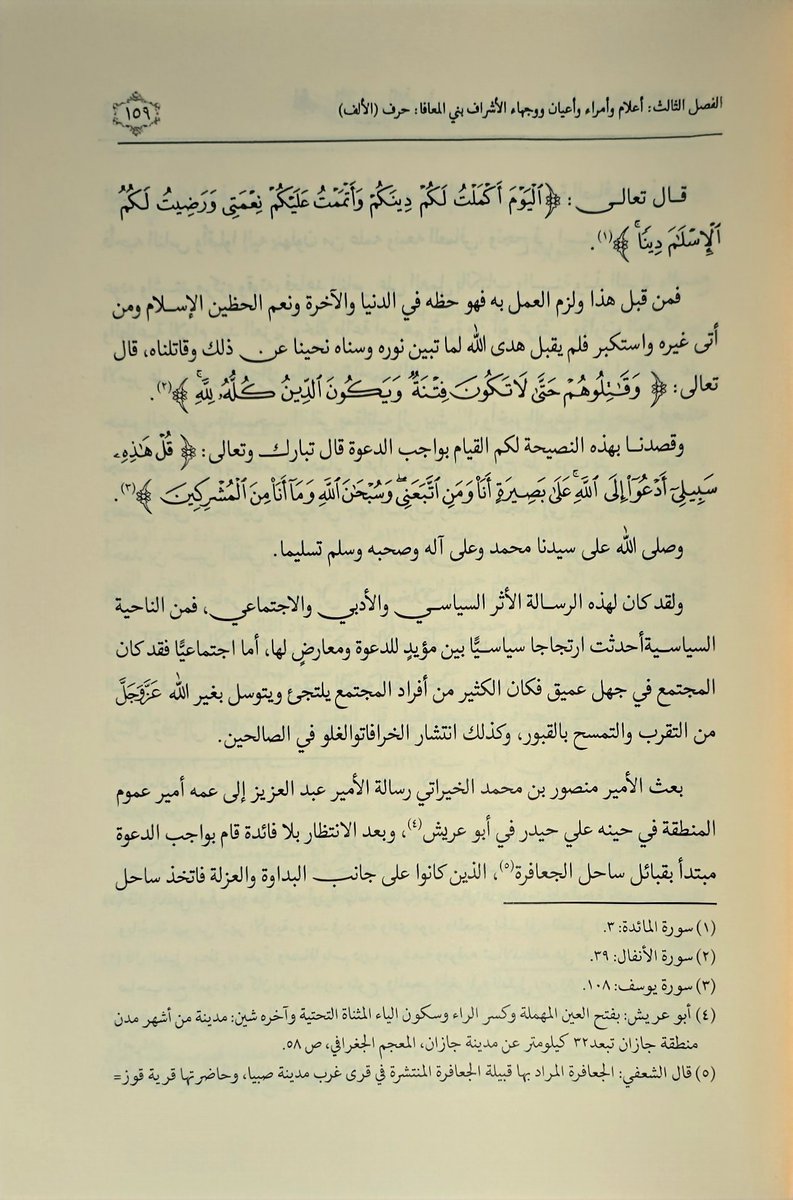 الفصل الثالث: أعلام وأمراء وأعيان ووجهاء الأشراف بني المعافا: حرف (الألف)
١٥٩
قال تعالى: ﴿ٱلْيَوْمَ أَكْمَلْتُ لَكُمْ دِينَكُمْ وَأَتْمَمْتُ عَلَيْكُمْ نِعْمَتِي وَرَضِيتُ لَكُمُ
ٱلْإِسْلَٰمَ دِينًا﴾(١).
فمن قبل هذا ولزم العمل به فهو حظه في الدنيا والآخرة ونعم الحظين الإسلام ومن
أتى غيره واستكبر فلم يقبل هدى الله لما تبين نوره وسناه نحينا عن ذلك وقاتلناه، قال
تعالى: ﴿وَقَٰتِلُوهُمْ حَتَّىٰ لَا تَكُونَ فِتْنَةٌ وَيَكُونَ ٱلدِّينُ كُلُّهُۥ لِلَّهِ﴾(٢).
وقصدنا بهذه النصيحة لكم القيام بواجب الدعوة قال تبارك وتعالى: ﴿قُلْ هَٰذِهِۦ
سَبِيلِيٓ أَدْعُوٓا۟ إِلَى ٱللَّهِ ۚ عَلَىٰ بَصِيرَةٍ أَنَا۠ وَمَنِ ٱتَّبَعَنِي ۖ وَسُبْحَٰنَ ٱللَّهِ وَمَآ أَنَا۠ مِنَ ٱلْمُشْرِكِينَ﴾(٣).
وصلى الله على سيدنا محمد وعلى آله وصحبه وسلم تسليما.
ولقد كان لهذه الرسالة الأثر السياسي والأدبي والاجتماعي، فمن الناحية
السياسيةأحدثت ارتجاجا سياسيًّا بين مؤيدٍ للدعوة ومعارضٍ لها، أما اجتماعيًّا فقد كان
المجتمع في جهل عميق فكان الكثير من أفراد المجتمع يلتجئ ويتوسل بغير الله عَزَّوَجَلَّ
من التقرب والتمسح بالقبور، وكذلك انتشار الخرافاتوالغلو في الصالحين.
بعث الأمير منصور بن محمد الخيراتي رسالة الأمير عبد العزيز إلى عمه أمير عموم
المنطقة في حينه علي حيدر في أبو عريش(٤)، وبعد الانتظار بلا فائدة قام بواجب الدعوة
مبتدأ بقبائل ساحل الجعافرة(٥)، الذين كانوا على جانب البداوة والعزلة فاتخذ ساحل
(١) سورة المائدة: ٣.
(٢) سورة الأنفال: ٣٩.
(٣) سورة يوسف: ١٠٨.
(٤) أبو عريش: بفتح العين المهملة وكسر الراء وسكون الياء المثناة التحتية وآخره شين: مدينة من أشهر مدن
منطقة جازان تبعد٣٢ كيلومتر عن مدينة جازان، المعجم الجغرافي، ص ٥٨.
(٥) قال الشعفي: الجعافرة المراد بها قبيلة الجعافرة المنتشرة في قرى غرب مدينة صبيا، وحاضرتها قرية قوز=